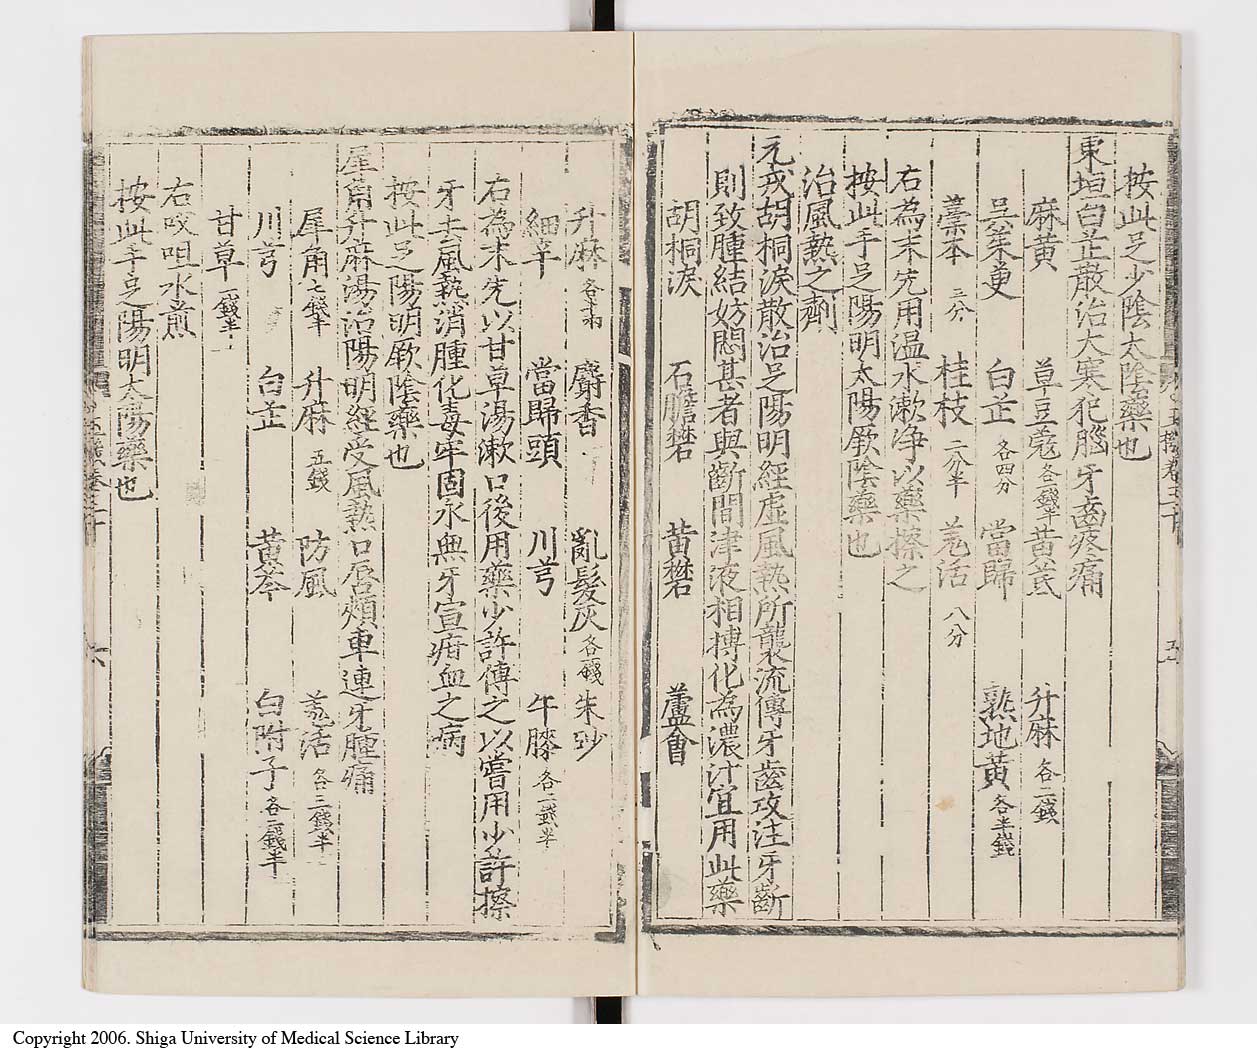 按此足少陰太陰藥也
東垣白芷散治大寒犯腦牙齒疼痛
麻黃 草豆蔲各一錢半 黃茋 升麻各二錢
吳茱萸 白芷各四分 當歸 熟地黃各半錢
藁本三分 桂枝二分半 羌活八分
右為末先用温水漱净以藥擦之
按此手足陽明太陽厥陰藥也
治風熱之劑
元戎胡桐淚散治足陽明經虛風熱所襲流傳牙齒攻注牙齗
則致腫結妨悶甚者與齗間津液相搏化為濃汁宜用此藥
胡桐淚 石膽礬 黃礬 蘆薈
升麻 麝香 亂髮灰 朱砂
細辛 當歸頭 川芎 牛膝各二錢半
右為末先以甘草湯漱口後用藥少許傅之以嘗用少許擦
牙去風熱消腫化毒牢固永無牙宣疳血之病
按此足陽明厥陰藥也
犀角升麻湯治陽明經受風熱口唇頰車連牙腫痛
犀角七錢半 升麻五錢 防風 羌活各三錢半
川芎 白芷 黃芩 白附子各二錢半
甘草一錢半
右㕮咀水煎
按此手足陽明太陽藥也
Copyright 2006. Shiga University of Medical Science Library